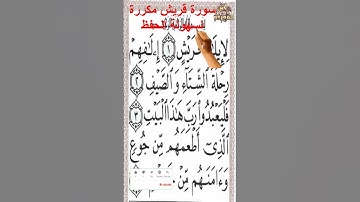 سورة قريش مكررة
لسهولة الحفظ
لِإِيلَٰفِ قُرَيْشٍ ١ إِۦلَٰفِهِمْ
رِحْلَةَ ٱلشِّتَآءِ وَٱلصَّيْفِ ٢
فَلْيَعْبُدُوا۟ رَبَّ هَٰذَا ٱلْبَيْتِ ٣
ٱلَّذِىٓ أَطْعَمَهُم مِّن جُوعٍ
وَءَامَنَهُم مِّنْ